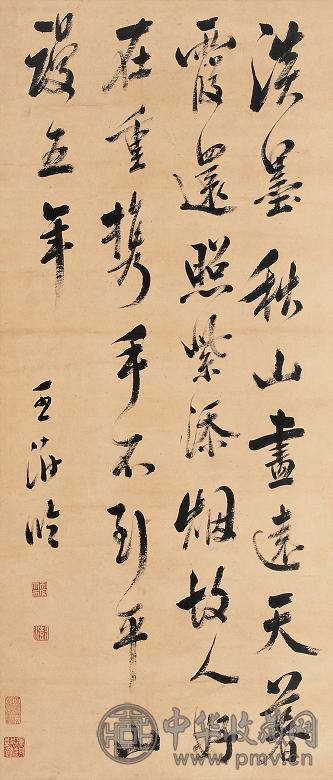 淡墨秋山畫遠天暮
霞還照紫添烟故人好
在重携手不到平山
謾五年
王 臨
中华收藏网